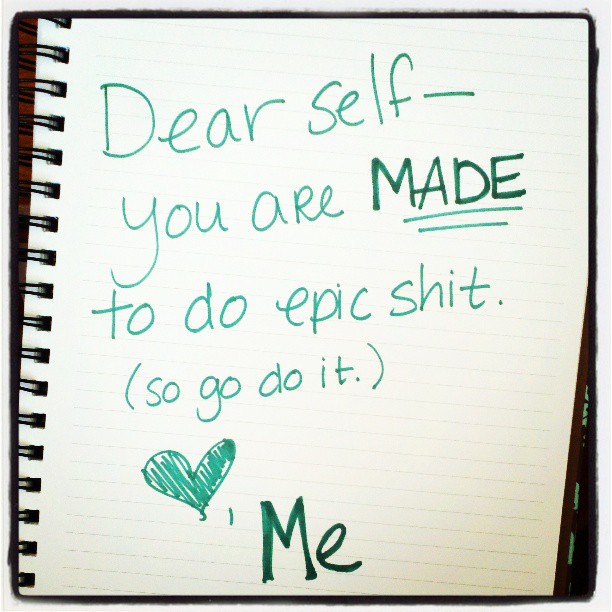 Dear self—
you are MADE
to do epic shit.
(so go do it.)
♥, Me